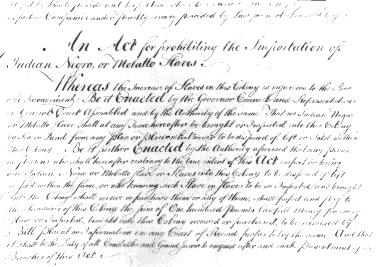 An Act for prohibiting the Importation of
Indian, Negro, or Molatto Slaves.
Whereas the Increase of Slaves in this Colony is injurious to the Poor
and Inconvenient; Be it Enacted by the Governor Council and Representatives
in General Court Assembled and by the Authority of the same That no Indian Negro
or Molatto Slave shall at any time hereafter be brought or imported into this Colony
by Sea or Land from any place or places whatsoever to be disposed of left or sold within
this Colony. Be it further Enacted by the Authority aforesaid that any person
or persons who shall hereafter contrary to the true intent of this Act import or bring
any Indian Negro or Molatto Slave or Slaves into this Colony to be disposed of left
or sold within the same, or who knowing such Slave or Slaves to be so imported and brought
into the Colony shall receive or purchase them or any of them, shall forfeit and pay to
the Treasurer of this Colony the sum of One hundred Pounds Lawfull Money for every
Slave so imported, brought into this Colony received or purchased, to be recovered by
Bill plaint or Information in any Court of Record proper to try the same And that
it shall be the Duty of all Constables and Grand jurors to enquire after and make Presentment of
Breaches of this Act